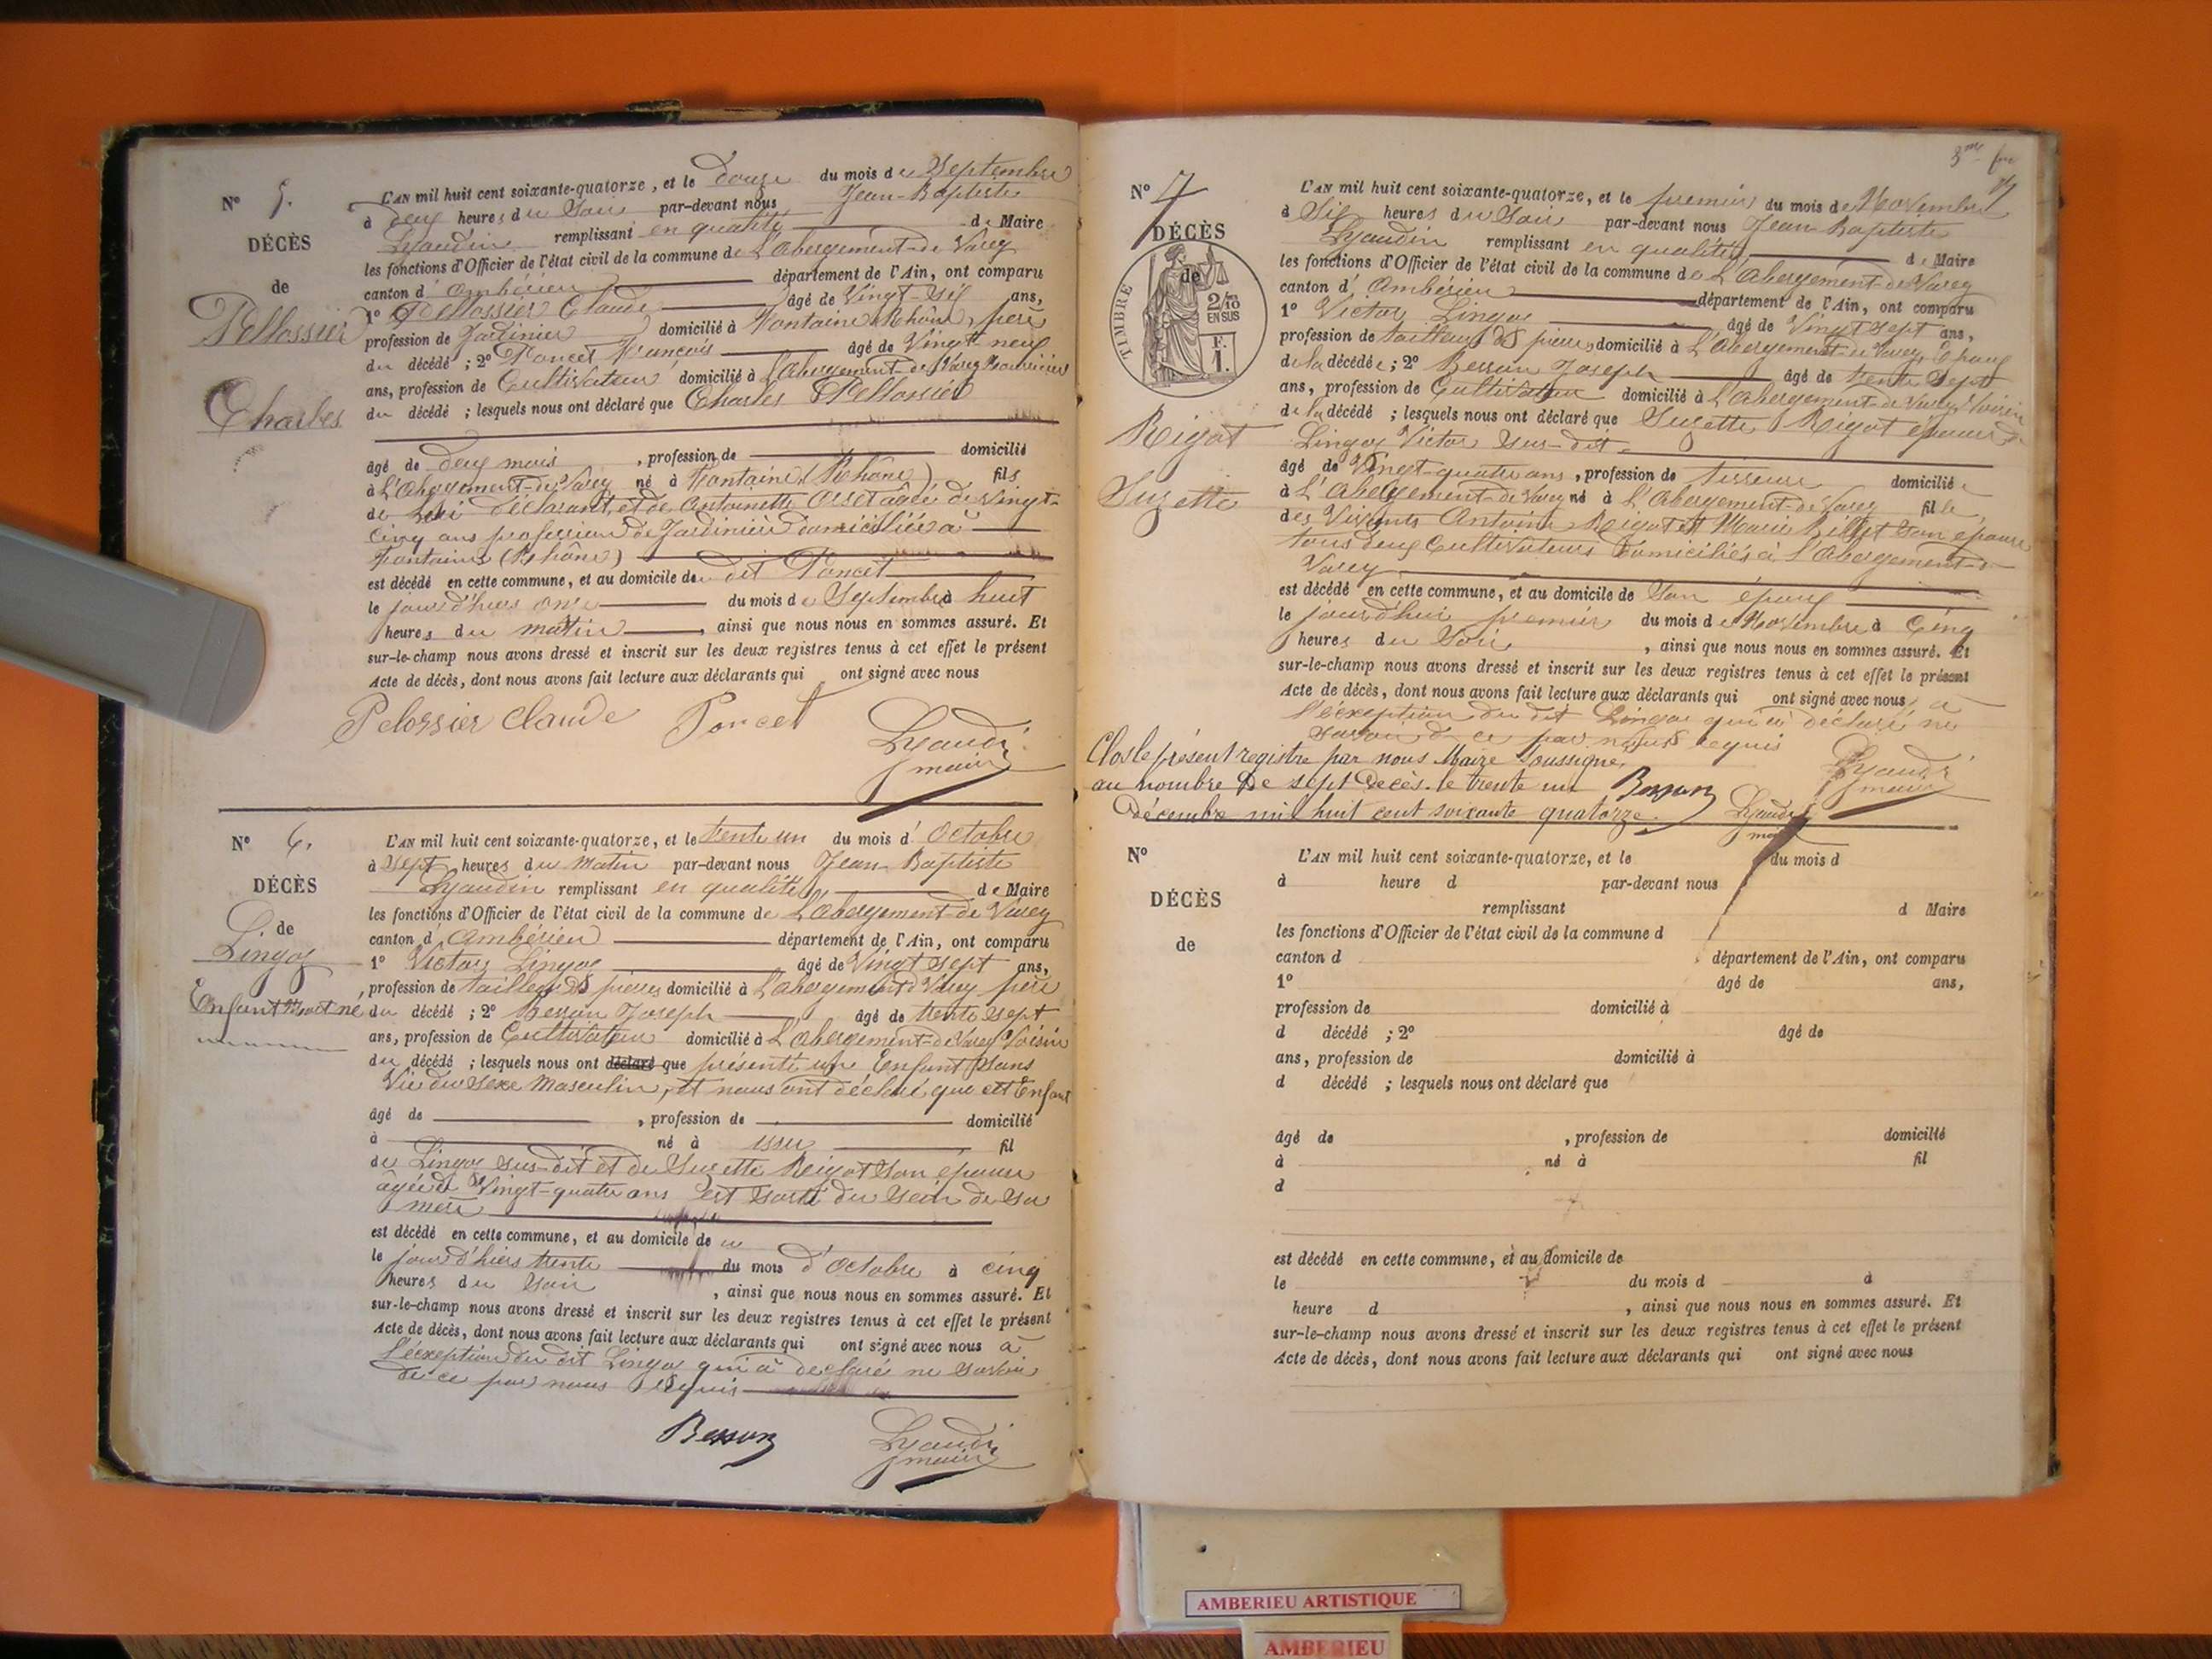 N° 5.
DÉCÈS
de
Pellossier
Charles
L'AN mil huit cent soixante-quatorze, et le douze du mois de Septembre
à deux heures du Soir par-devant nous Jean-Baptiste
Lyaudin remplissant en qualité de Maire
les fonctions d'Officier de l'état civil de la commune de L'Abergement-de Varey
canton d'Ambérieu département de l'Ain, ont comparu
1° Pellossier Claude âgé de Vingt-six ans,
profession de Jardinier domicilié à Fontaine (Rhône), père
du décédé ; 2° Poncet François âgé de Vingt neuf
ans, profession de Cultivateur domicilié à L'Abergement-de Varey
du décédé ; lesquels nous ont déclaré que Charles Pellossier
âgé de deux mois , profession de domicilié
à L'Abergement-de Varey né à Fontaine (Rhône) fils
de lui déclarant, et de Antoinette âgée de Vingt-
cinq ans profession de Jardinière domiciliée à
Fontaine (Rhône)
est décédé en cette commune, et au domicile du dit Poncet
le jour d'hiers onze du mois de Septembre à huit
heures du matin , ainsi que nous nous en sommes assuré. Et
sur-le-champ nous avons dressé et inscrit sur les deux registres tenus à cet effet le présent
Acte de décès, dont nous avons fait lecture aux déclarants qui ont signé avec nous
Pelossier Claude Poncet Lyaudin
maire
N° 6.
DÉCÈS
de
Lingoz
Enfant Mort né
L'AN mil huit cent soixante-quatorze, et le trente un du mois d'Octobre
à Sept heures du Matin par-devant nous Jean-Baptiste
Lyaudin remplissant en qualité de Maire
les fonctions d'Officier de l'état civil de la commune de L'Abergement-de Varey
canton d'Ambérieu département de l'Ain, ont comparu
1° Victor Lingoz âgé de Vingt sept ans,
profession de tailleur de pierres domicilié à L'abergement-d Varey père
du décédé ; 2° Besson Joseph âgé de trente sept
ans, profession de Cultivateur domicilié à L'Abergement-de Varey Voisin
du décédé ; lesquels nous ont déclaré que présenté un Enfant Sans
Vie du sexe Masculin, et nous ont déclaré que cet Enfant
âgé de , profession de domicilié
à né à issu fil
de Lingoz sus-dit et de Suzette Rigot son épouse
âgée de Vingt-quatre ans est sorti du sein de sa
mère
est décédé en cette commune, et au domicile de
le jour d'hiers trente du mois d'Octobre à cinq
heures du Soir , ainsi que nous nous en sommes assuré. Et
sur-le-champ nous avons dressé et inscrit sur les deux registres tenus à cet effet le présent
Acte de décès, dont nous avons fait lecture aux déclarants qui ont signé avec nous à
l'éxception du dit Lingoz qui à déclaré ne savoir
de ce par nous requis
Besson Lyaudin
maire
N° 7
DÉCÈS
de
TIMBRE
2/10
EN SUS
F.
1.
Rigot
Suzette
L'AN mil huit cent soixante-quatorze, et le premier du mois de Novembre
à Six heures du Soir par-devant nous Jean-Baptiste
Lyaudin remplissant en qualité de Maire
les fonctions d'Officier de l'état civil de la commune de L'Abergement-de Varey
canton d'Ambérieu département de l'Ain, ont comparu
1° Victor Lingoz âgé de Vingt sept ans,
profession de tailleur de pierres, domicilié à L'Abergement-de Varey, Epoux
de la décédée ; 2° Besson Joseph âgé de trente Sept
ans, profession de Cultivateur domicilié à L'Abergement-de Varey, Voisin
de la décédé ; lesquels nous ont déclaré que Suzette Rigot épouse d
Lingoz Victor sus-dit
âgé de Vingt-quatre ans , profession de tisseuse domicilié
à L'Abergement-de Varey né à L'Abergement-de Varey fille
des Vivants Antoine Rigot et Marie Billet son épouse
tous deux Cultivateurs domiciliés à l'Abergement-d
Varey
est décédé en cette commune, et au domicile de Son époux
le jour d'hui premier du mois de Novembre à Cinq
heures du Soir , ainsi que nous nous en sommes assuré. Et
sur-le-champ nous avons dressé et inscrit sur les deux registres tenus à cet effet le présent
Acte de décès, dont nous avons fait lecture aux déclarants qui ont signé avec nous à
l'éxception du dit Lingoz qui à déclaré ne
savoir de ce par nous requis
Clos le présent registre par nous Maire Soussigné,
au nombre de sept Décès. le trente un Besson Lyaudin
maire
Décembre mil huit cent soixante quatorze. Lyaudin
maire
N°
DÉCÈS
de
L'AN mil huit cent soixante-quatorze, et le du mois d
à heure d par-devant nous
remplissant d Maire
les fonctions d'Officier de l'état civil de la commune d
canton d département de l'Ain, ont comparu
1° âgé de ans,
profession de domicilié à
d décédé ; 2° âgé de
ans, profession de domicilié à
d décédé ; lesquels nous ont déclaré que
âgé de , profession de domicilié
à né à fil
d
est décédé en cette commune, et au domicile de
le du mois d à
heure d , ainsi que nous nous en sommes assuré. Et
sur-le-champ nous avons dressé et inscrit sur les deux registres tenus à cet effet le présent
Acte de décès, dont nous avons fait lecture aux déclarants qui ont signé avec nous
AMBERIEU ARTISTIQUE
AMBERIEU